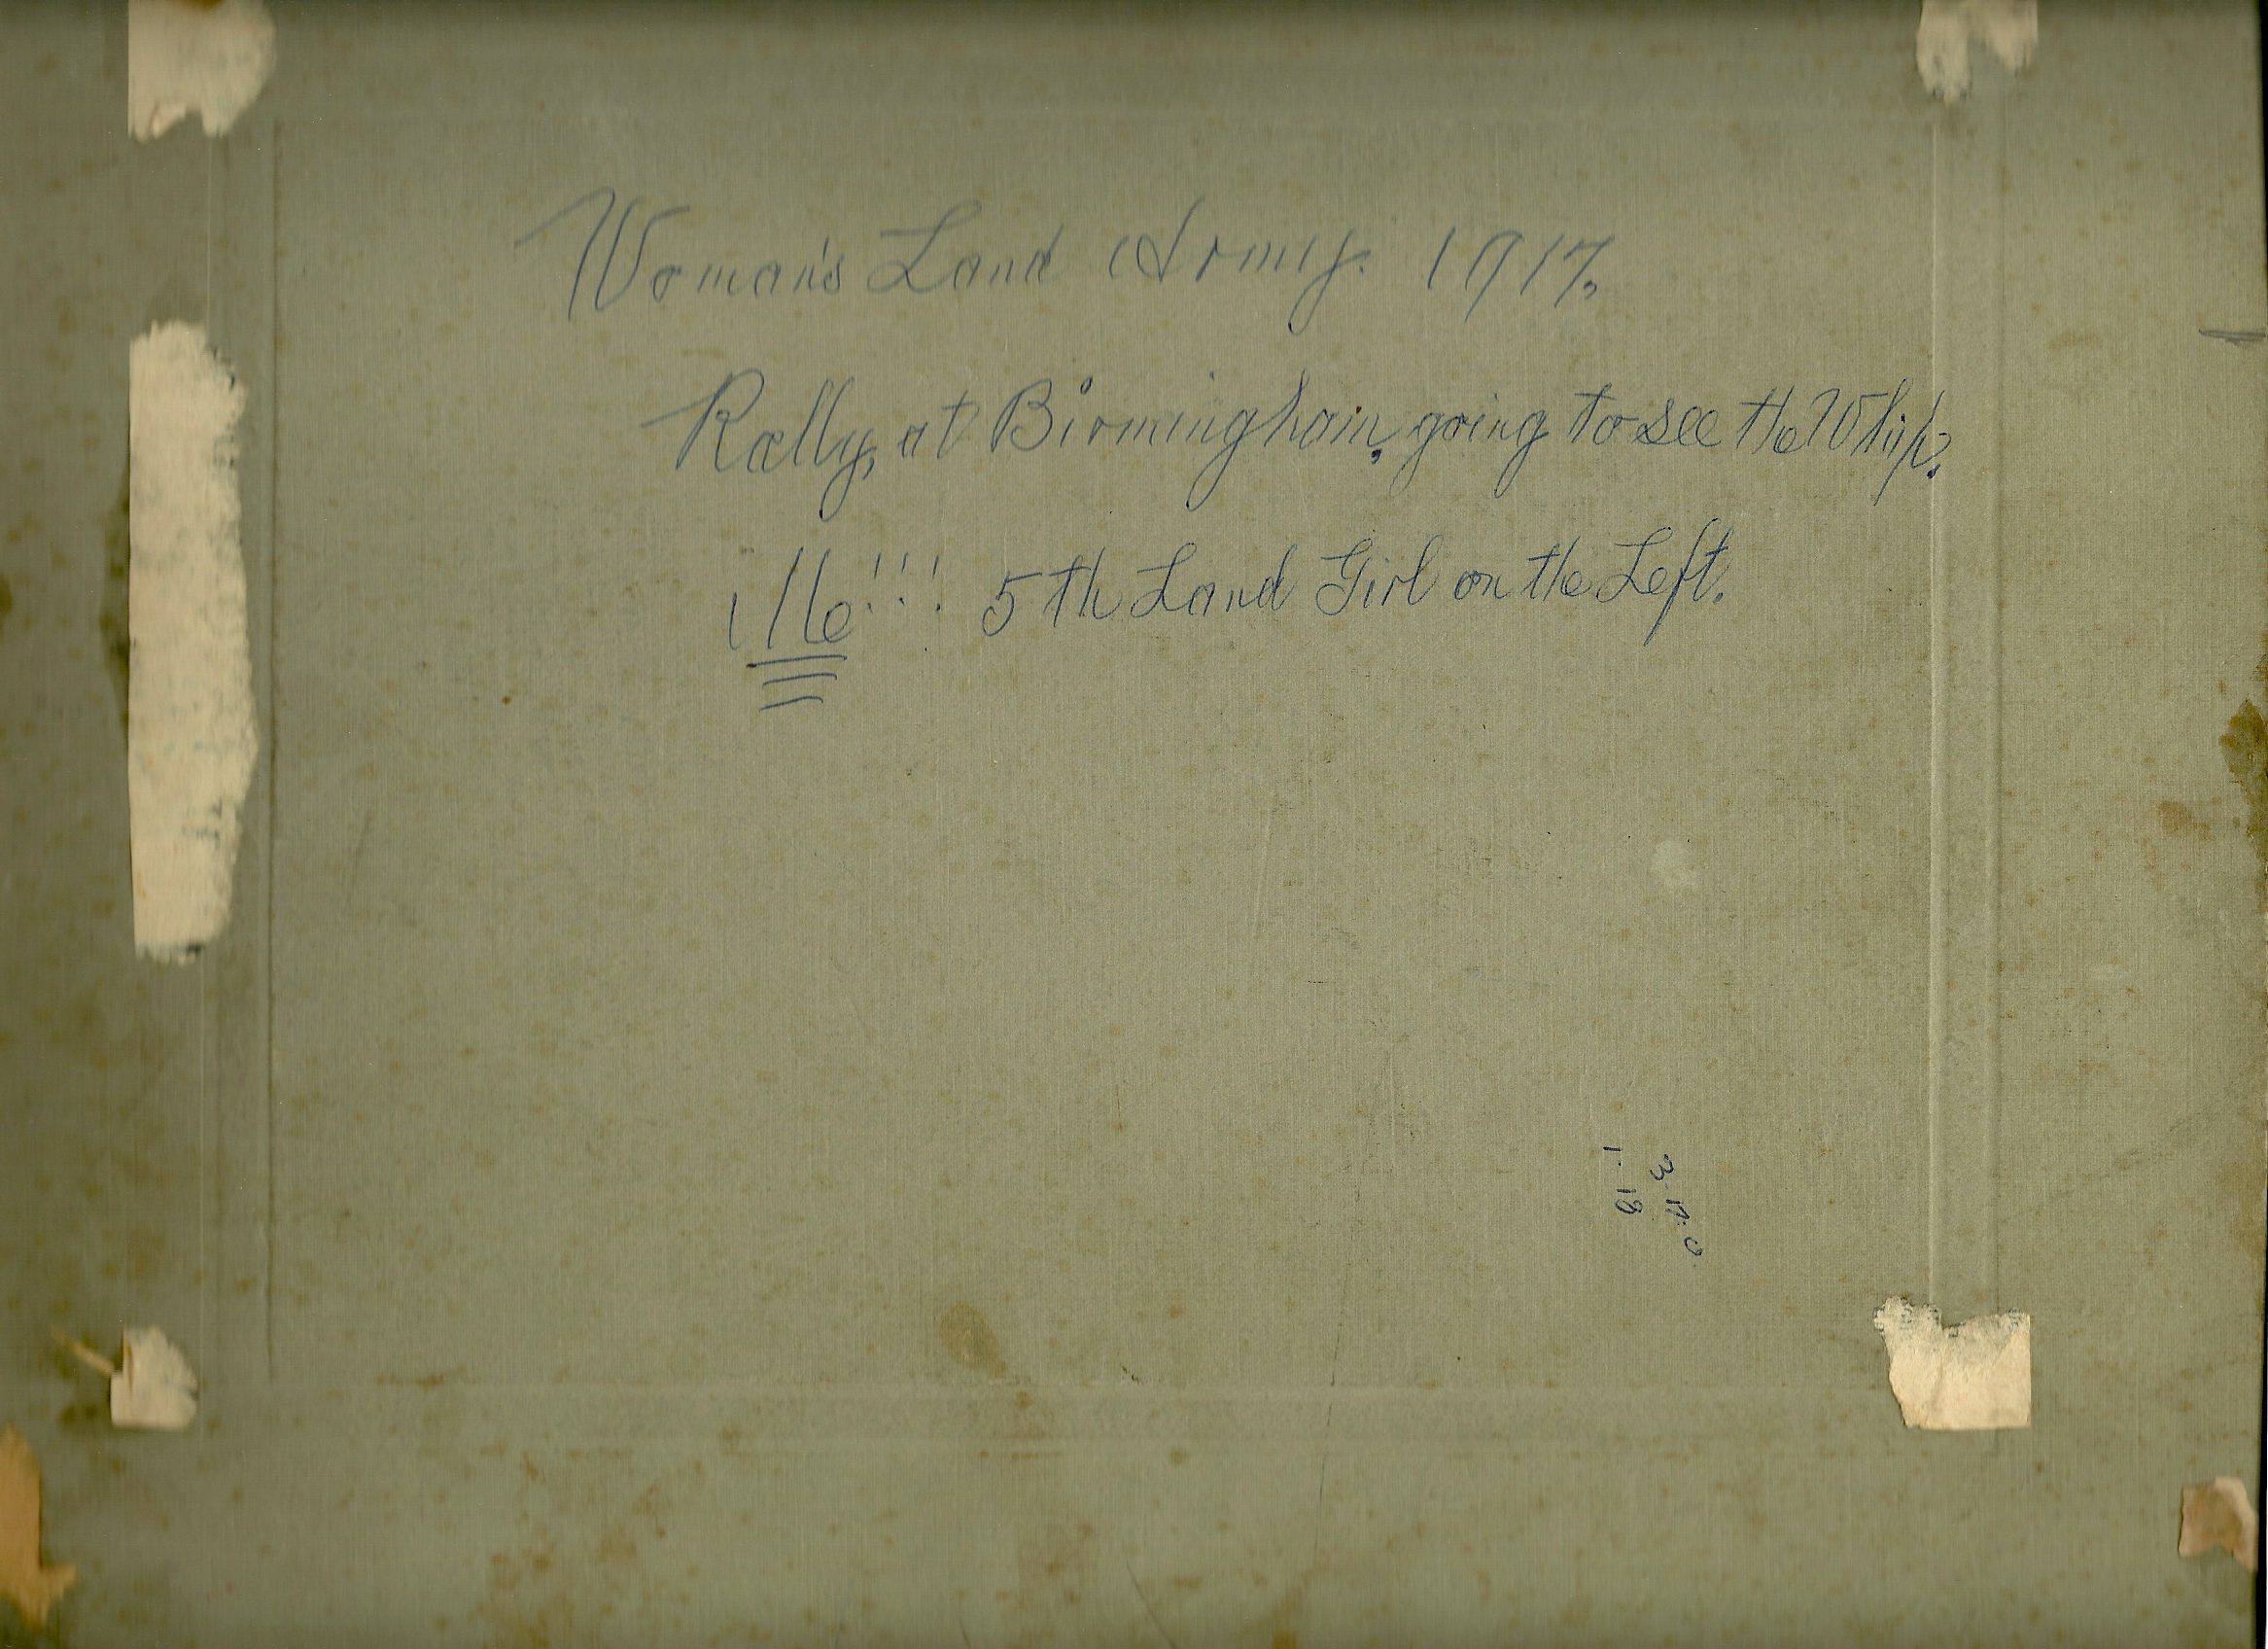 Woman's Land Army. 1917.
Rally, at Birmingham, going to see the Whip.
Me!!! 5th Land Girl on the Left.
3. 17. 0
1. 18